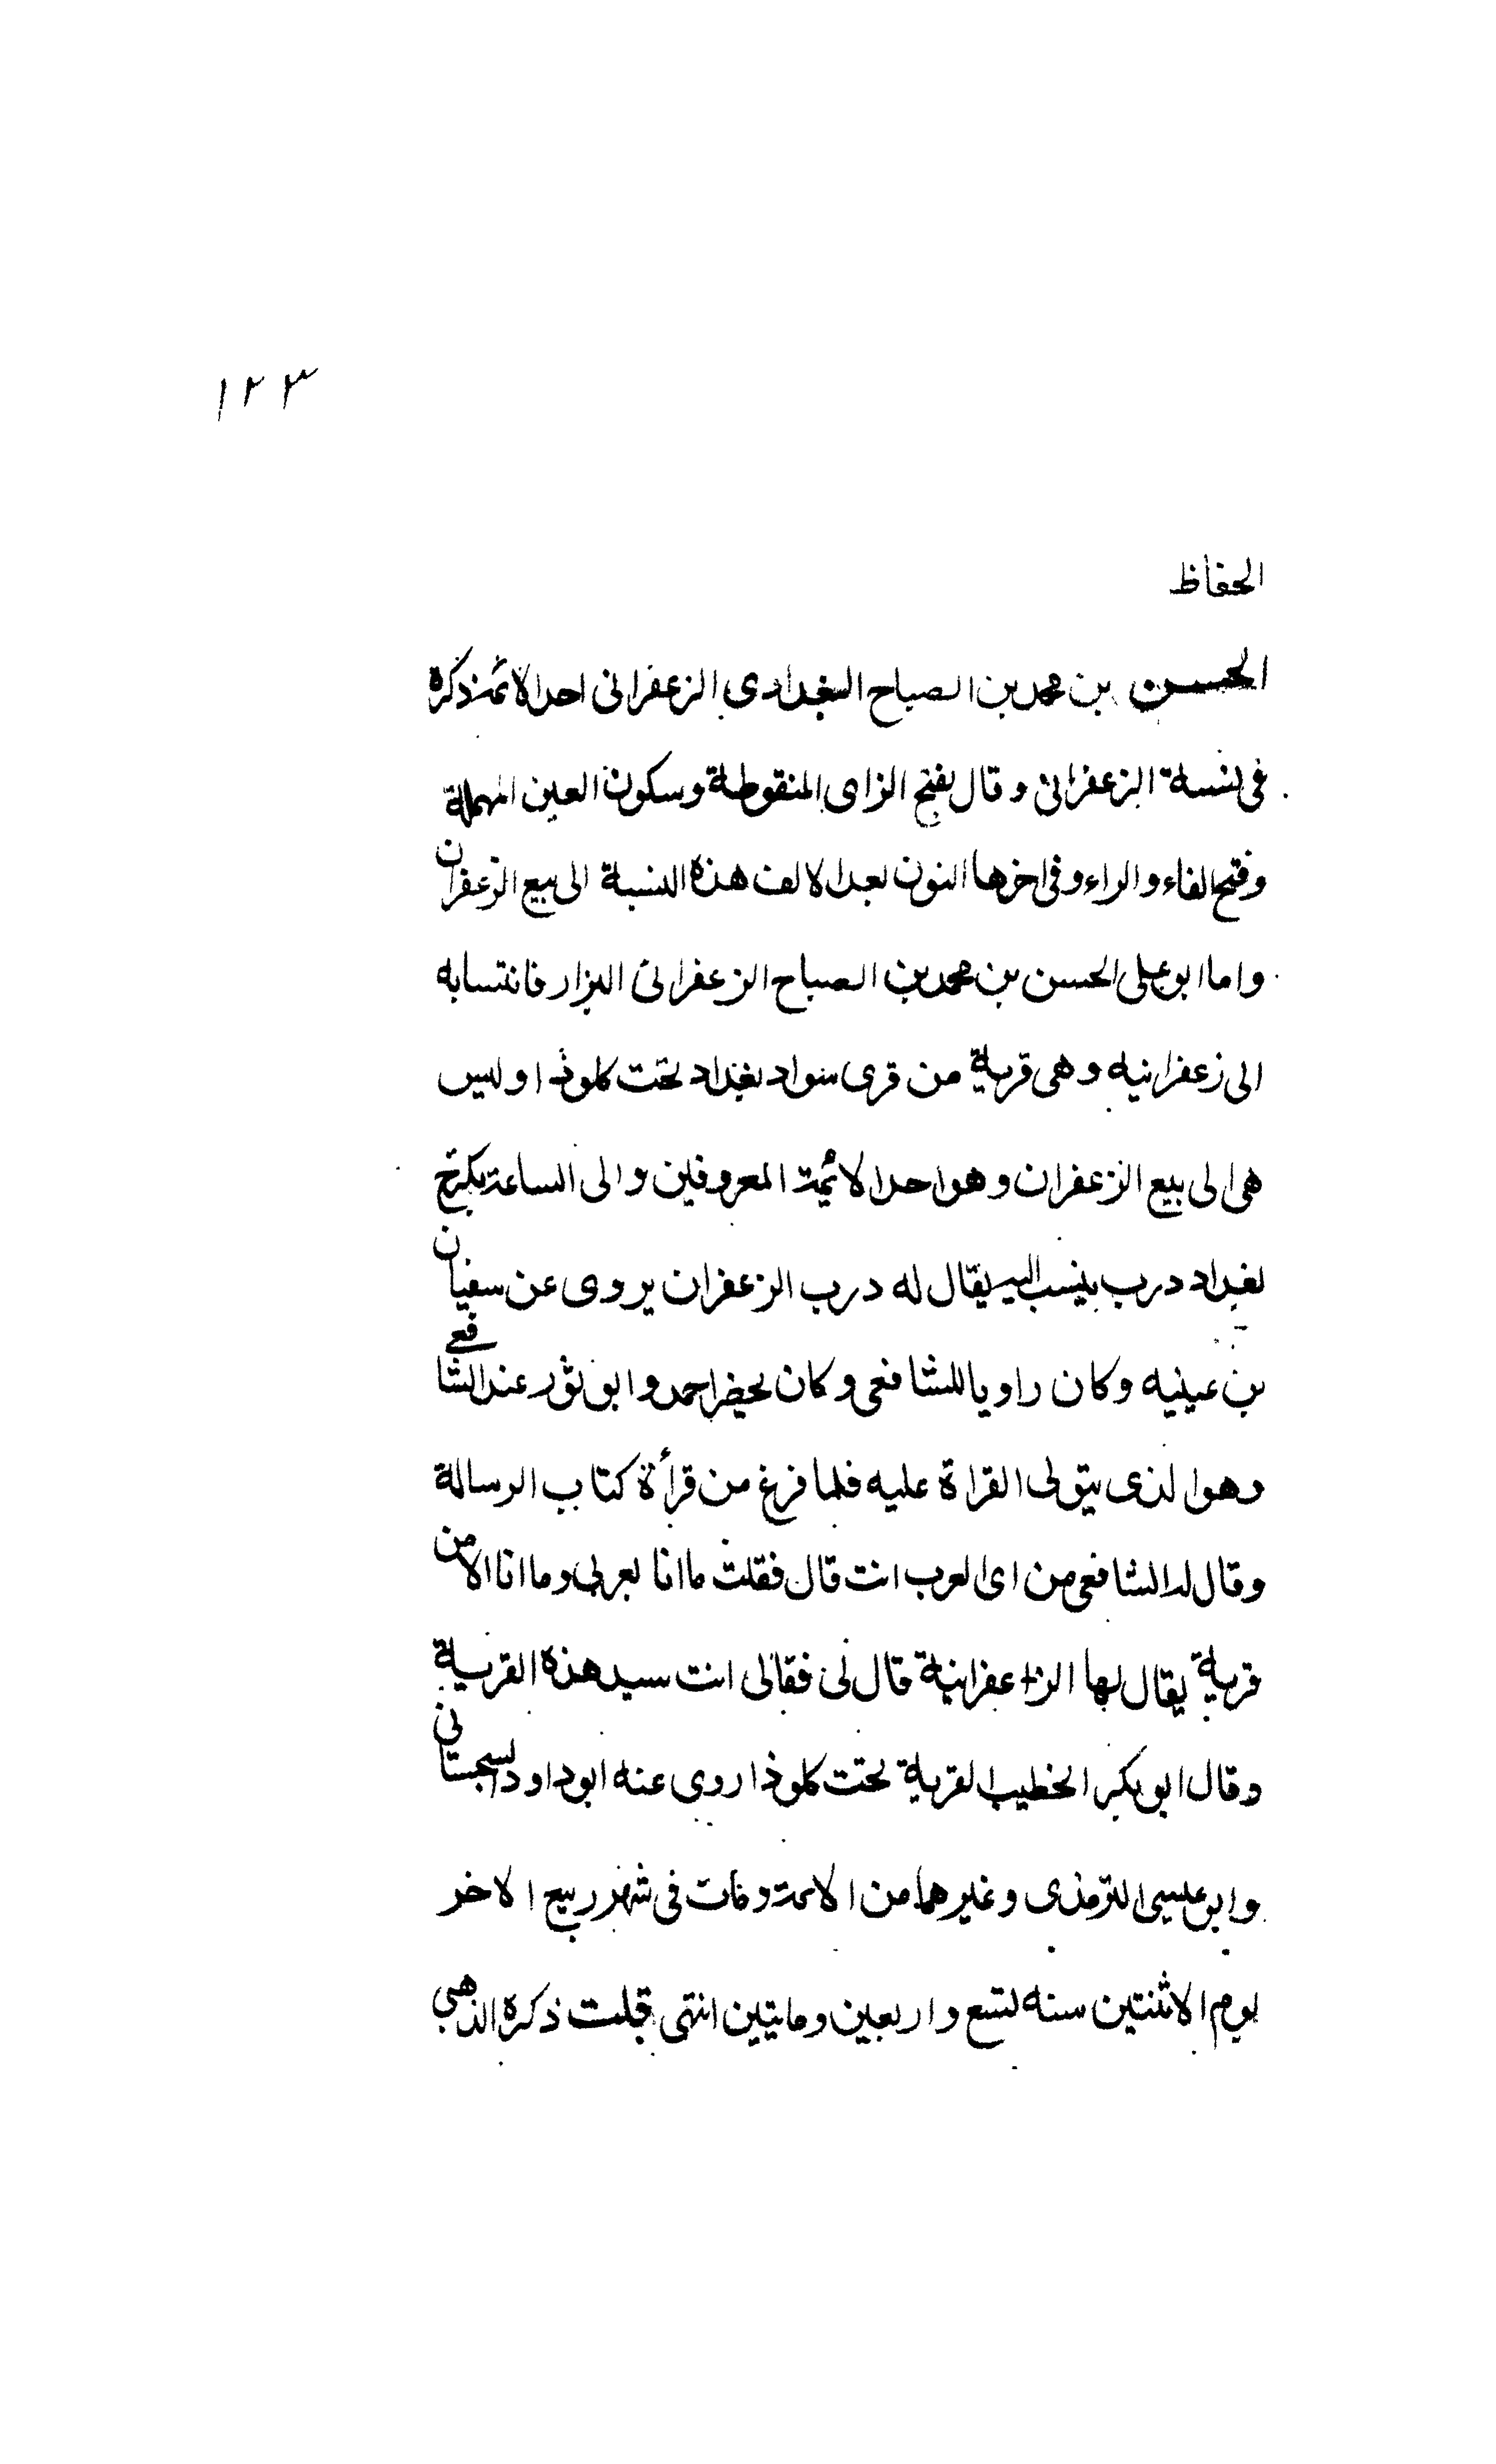 ١٢٣
الحفاظ
الحسن بن محمد بن الصباح البغدادى الزعفرانى احد الائمة ذكره
فى نسبة الزعفرانى وقال بفتح الزاى المنقوطة وسكون العين المهملة
وفتح الفاء والراء وفى اخرها النون بعد الالف هذه النسبة الى بيع الزعفران
واما ابو على الحسن بن محمد بن الصباح الزعفرانى البزار فانتسابه
الى زعفرانيه وهى قرية من قرى سواد بغداد تحت كلوذا وليس
هى الى بيع الزعفران وهو احد الائمة المعروفين والى الساعة بكرخ
بغداد درب ينسب اليه يقال له درب الزعفران يروى عن سفيان
بن عيينه وكان راويا للشافعى وكان يحضر احمد وابو ثور عند الشافعى
وهو الذى يتولى القراة عليه فلما فرغ من قرأة كتاب الرسالة
وقال له الشافعى من اى العرب انت قال فقلت ما انا بعربى وما انا الا من
قرية يقال لها الزاعفرانية قال لى فقالى انت سيد هذه القرية
وقال ابو بكر الخطيب القرية تحت كلوذا روى عنه ابو داود السجستانى
وابو عيسى الترمذى وغيرهما من الائمة ومات فى شهر ربيع الاخر
يوم الاثنتين سنه تسع واربعين وماتيين انتهى قلت ذكره الذهبى